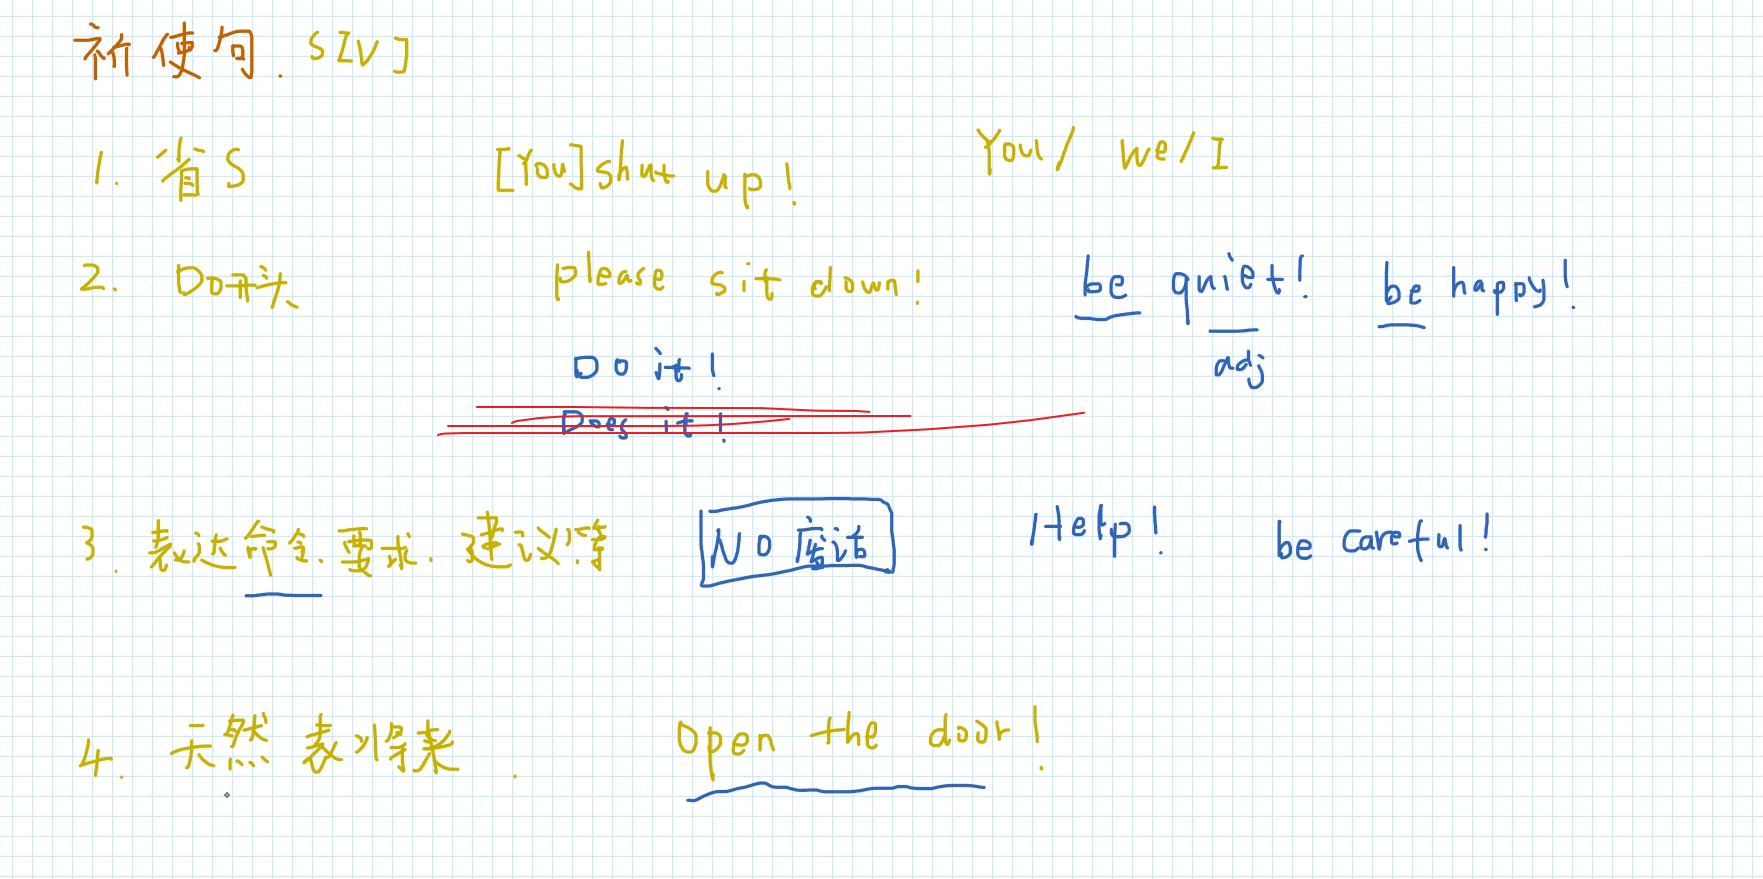 祈使句. S[V]
1. 省S [You] shut up! You / we / I
2. Do开头 please sit down! be quiet! be happy!
Do it! adj
Does it!
3. 表达命令、要求、建议等 NO 废话 Help! be careful!
4. 天然 表将来. Open the door!